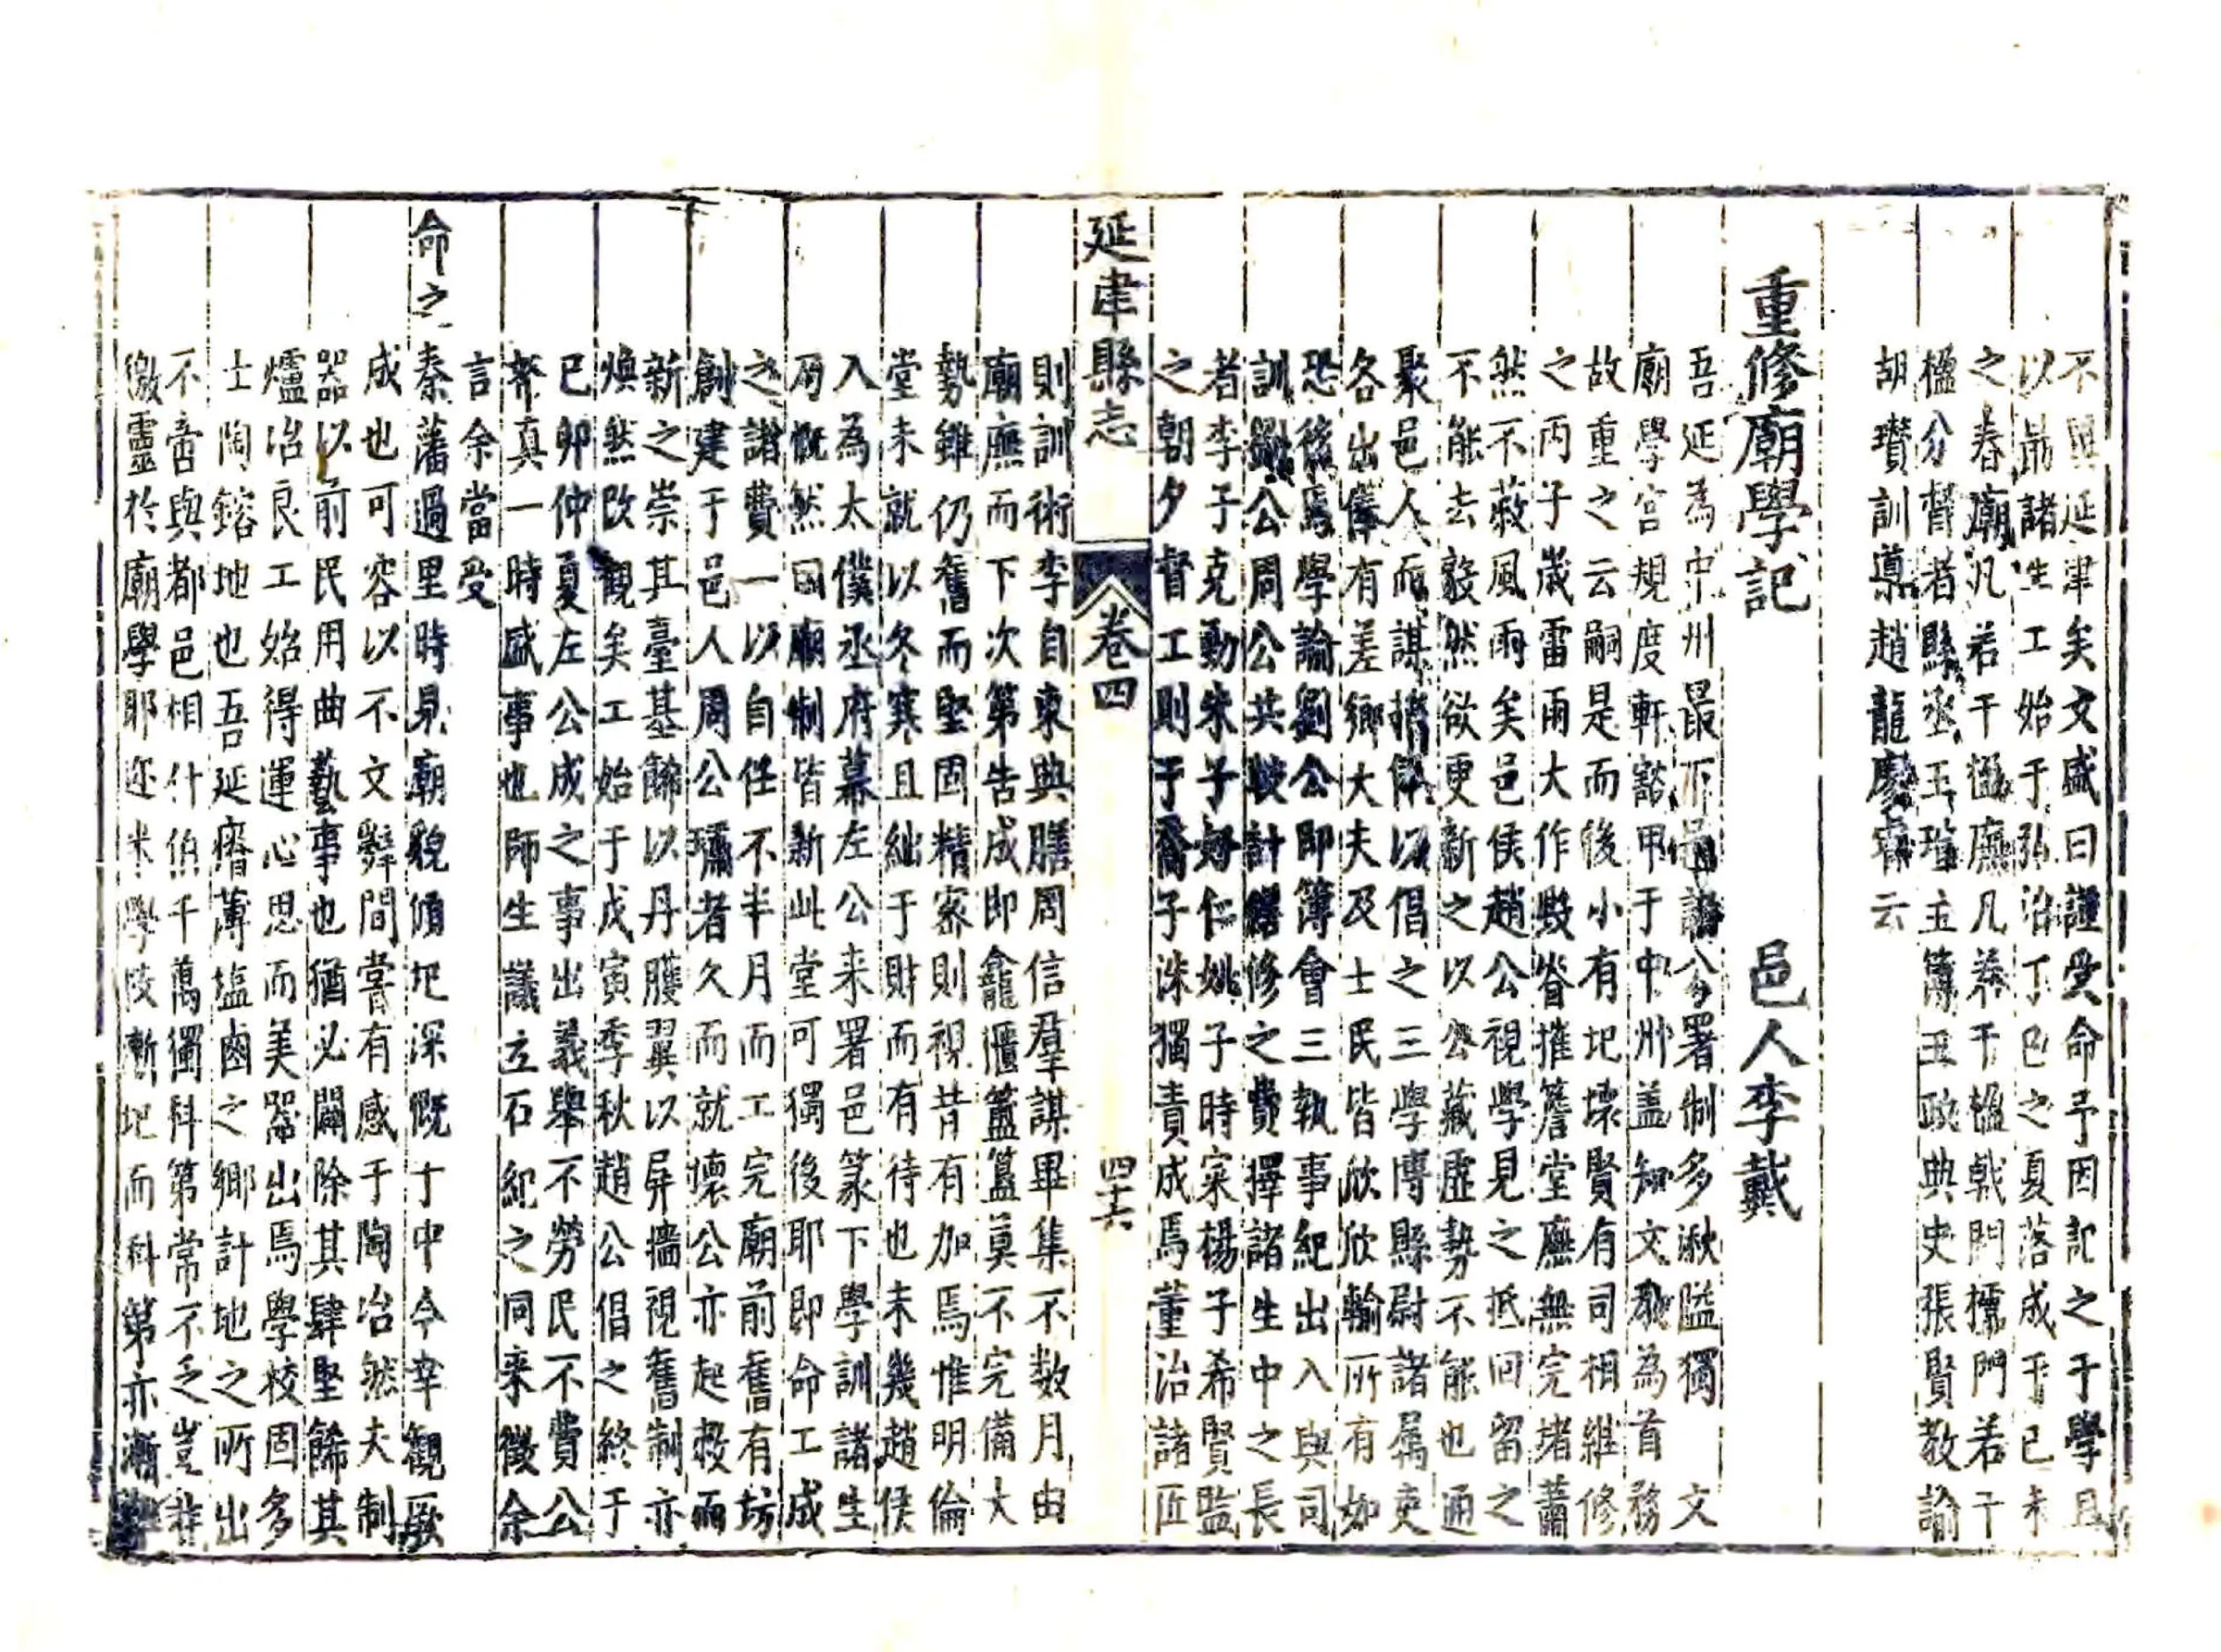 不與延津矣文盛曰謹受命予因記之于學且
以勗諸生工始于弘治丁巳之夏落成于己未
之春廟凡若干楹廡凡若干楹戟門欞門若干
楹分督者縣丞王瑄主簿王政典史張賢教諭
胡瓚訓導趙龍廖寀云
重修廟學記 邑人李戴
吾延為中州最下邑諸公署制多湫隘獨 文
廟學宮規度軒豁甲于中州盖知文教為首務
故重之云嗣是而後小有圮壞賢有司相継修
之丙子歲雷雨大作毀脊摧簷堂廡無完堵蕭
然不蔽風雨矣邑侯趙公視學見之抵回留之
不能去毅然欲更新之以公藏虛勢不能也通
聚邑人而謀捐俸以倡之三學博縣尉諸属吏
各出俸有差鄉大夫及士民皆欣欣輸所有如
恐後焉學諭劉公即簿會三執事紀出入與司
訓公周公共計修之費擇諸生中之長
者李子克勤朱子好仁姚子時寀楊子希賢監
之朝夕督工則于喬子洙獨責成焉董治諸匠
延津縣志 卷四 四十六
則訓術李自東與膳周信羣謀畢集不数月由
廟廡而下次第告成即龕㯍簠簋莫不完備大
勢雖仍舊而堅固精宻則視昔有加焉惟明倫
堂未就以冬寒且絀于財而有待也未幾趙侯
入為太僕丞府幕左公来署邑篆下學訓諸生
周慨然曰廟制皆新此堂可獨後耶即命工成
之諸費一以自任不半月而工完廟前舊有坊
創建于邑人周公璹者久而就壞公亦起救而
新之崇其臺基餙以丹雘翼以屏牆視舊制亦
煥然改觀矣工始于戊寅季秋趙公倡之終于
己卯仲夏左公成之事出義舉不勞民不費公
帑真一時盛事也師生議立石紀之同来徵余
言余當受
命之秦藩過里時見廟貌傾圮深慨于中今幸觀厥
成也可容以不文辭間嘗有感于陶冶然夫制
器以前民用曲藝事也猶必闢除其肆堅餙其
爐冶良工始得運心思而美器出焉學校固多
士陶鎔地也吾延瘠薄塩鹵之鄉計地之所出
不啻與都邑相什伯千萬獨科第常不乏豈非
徼靈於廟學耶迩来學校漸圮而科第亦漸